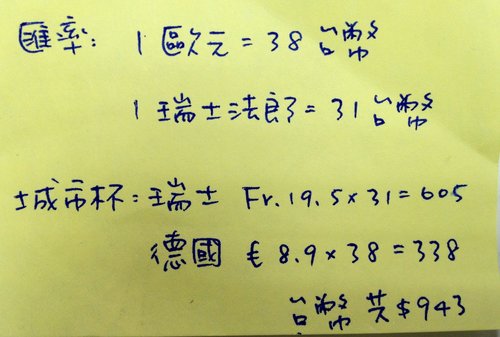 匯率: 1 歐元 = 38 台幣
1 瑞士法郎 = 31 台幣
城市杯: 瑞士 Fr. 19.5 x 31 = 605
德國 € 8.9 x 38 = 338
台幣 共 $ 943